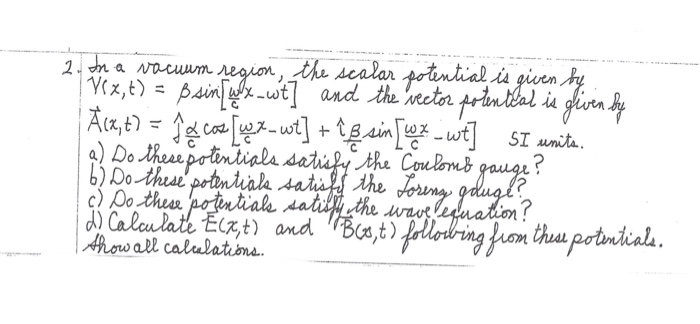 2. In a vacuum region, the scalar potential is given by
V(x,t) = β sin[ω/c x - ωt] and the vector potential is given by
Ā(x,t) = ĵ α/c cos[ωx/c - ωt] + î β/c sin[ωx/c - ωt] SI units.
a) Do these potentials satisfy the Coulomb gauge?
b) Do these potentials satisfy the Lorenz gauge?
c) Do these potentials satisfy the wave equation?
d) Calculate Ē(x,t) and B̄(x,t) following from these potentials.
Show all calculations.